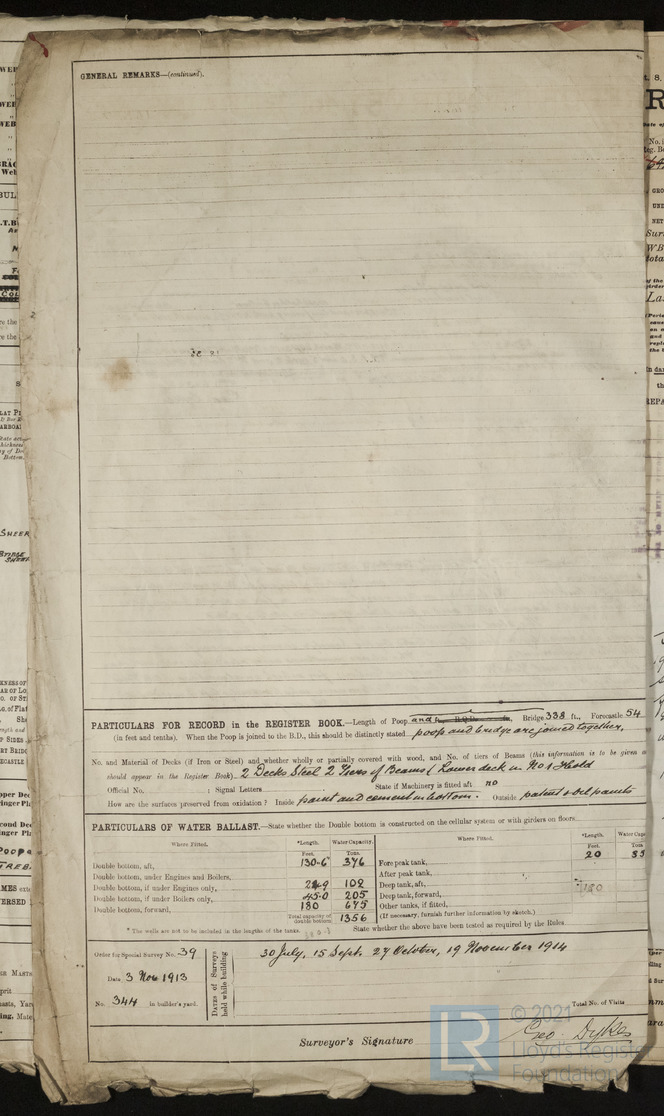 GENERAL REMARKS—(continued).
PARTICULARS FOR RECORD in the REGISTER BOOK.—Length of Poop and Bridge 338 ft., Forecastle 54
(in feet and tenths). When the Poop is joined to the B.D., this should be distinctly stated poop and bridge are joined together,
No. and Material of Decks (if Iron or Steel) and whether wholly or partially covered with wood, and No. of tiers of Beams (this information is to be given
should appear in the Register Book). 2 Decks Steel 2 Tiers of Beams (Lower deck in No 1 Hold
Official No. ; Signal Letters State if Machinery is fitted aft no
How are the surfaces preserved from oxidation? Inside paint and cement in bottom. Outside patent & oil paints
PARTICULARS OF WATER BALLAST.—State whether the Double bottom is constructed on the cellular system or with girders on floors
Where Fitted. *Length. Water Capacity. Where Fitted. *Length. Water Capa
Feet. Tons. Feet. Tons.
Double bottom, aft, 130-6 376 Fore peak tank, 20 85
Double bottom, under Engines and Boilers, After peak tank,
Double bottom, if under Engines only, 102 Deep tank, aft,
Double bottom, if under Boilers only, 45.0 205 Deep tank, forward,
Double bottom, forward, 180 675 Other tanks, if fitted,
Total capacity of double bottom 1356 (If necessary, furnish further information by sketch.)
* The wells are not to be included in the lengths of the tanks. State whether the above have been tested as required by the Rules
Order for Special Survey No. 39
Date 3 Nov 1913
No. 344 in builder's yard.
Dates of Surveys held while building
30 July, 15 Sept. 27 October, 19 November 1914
Total No. of Visits
Surveyor's Signature Geo. Dykes
LR
© 2021
Lloyd's Register
Foundation